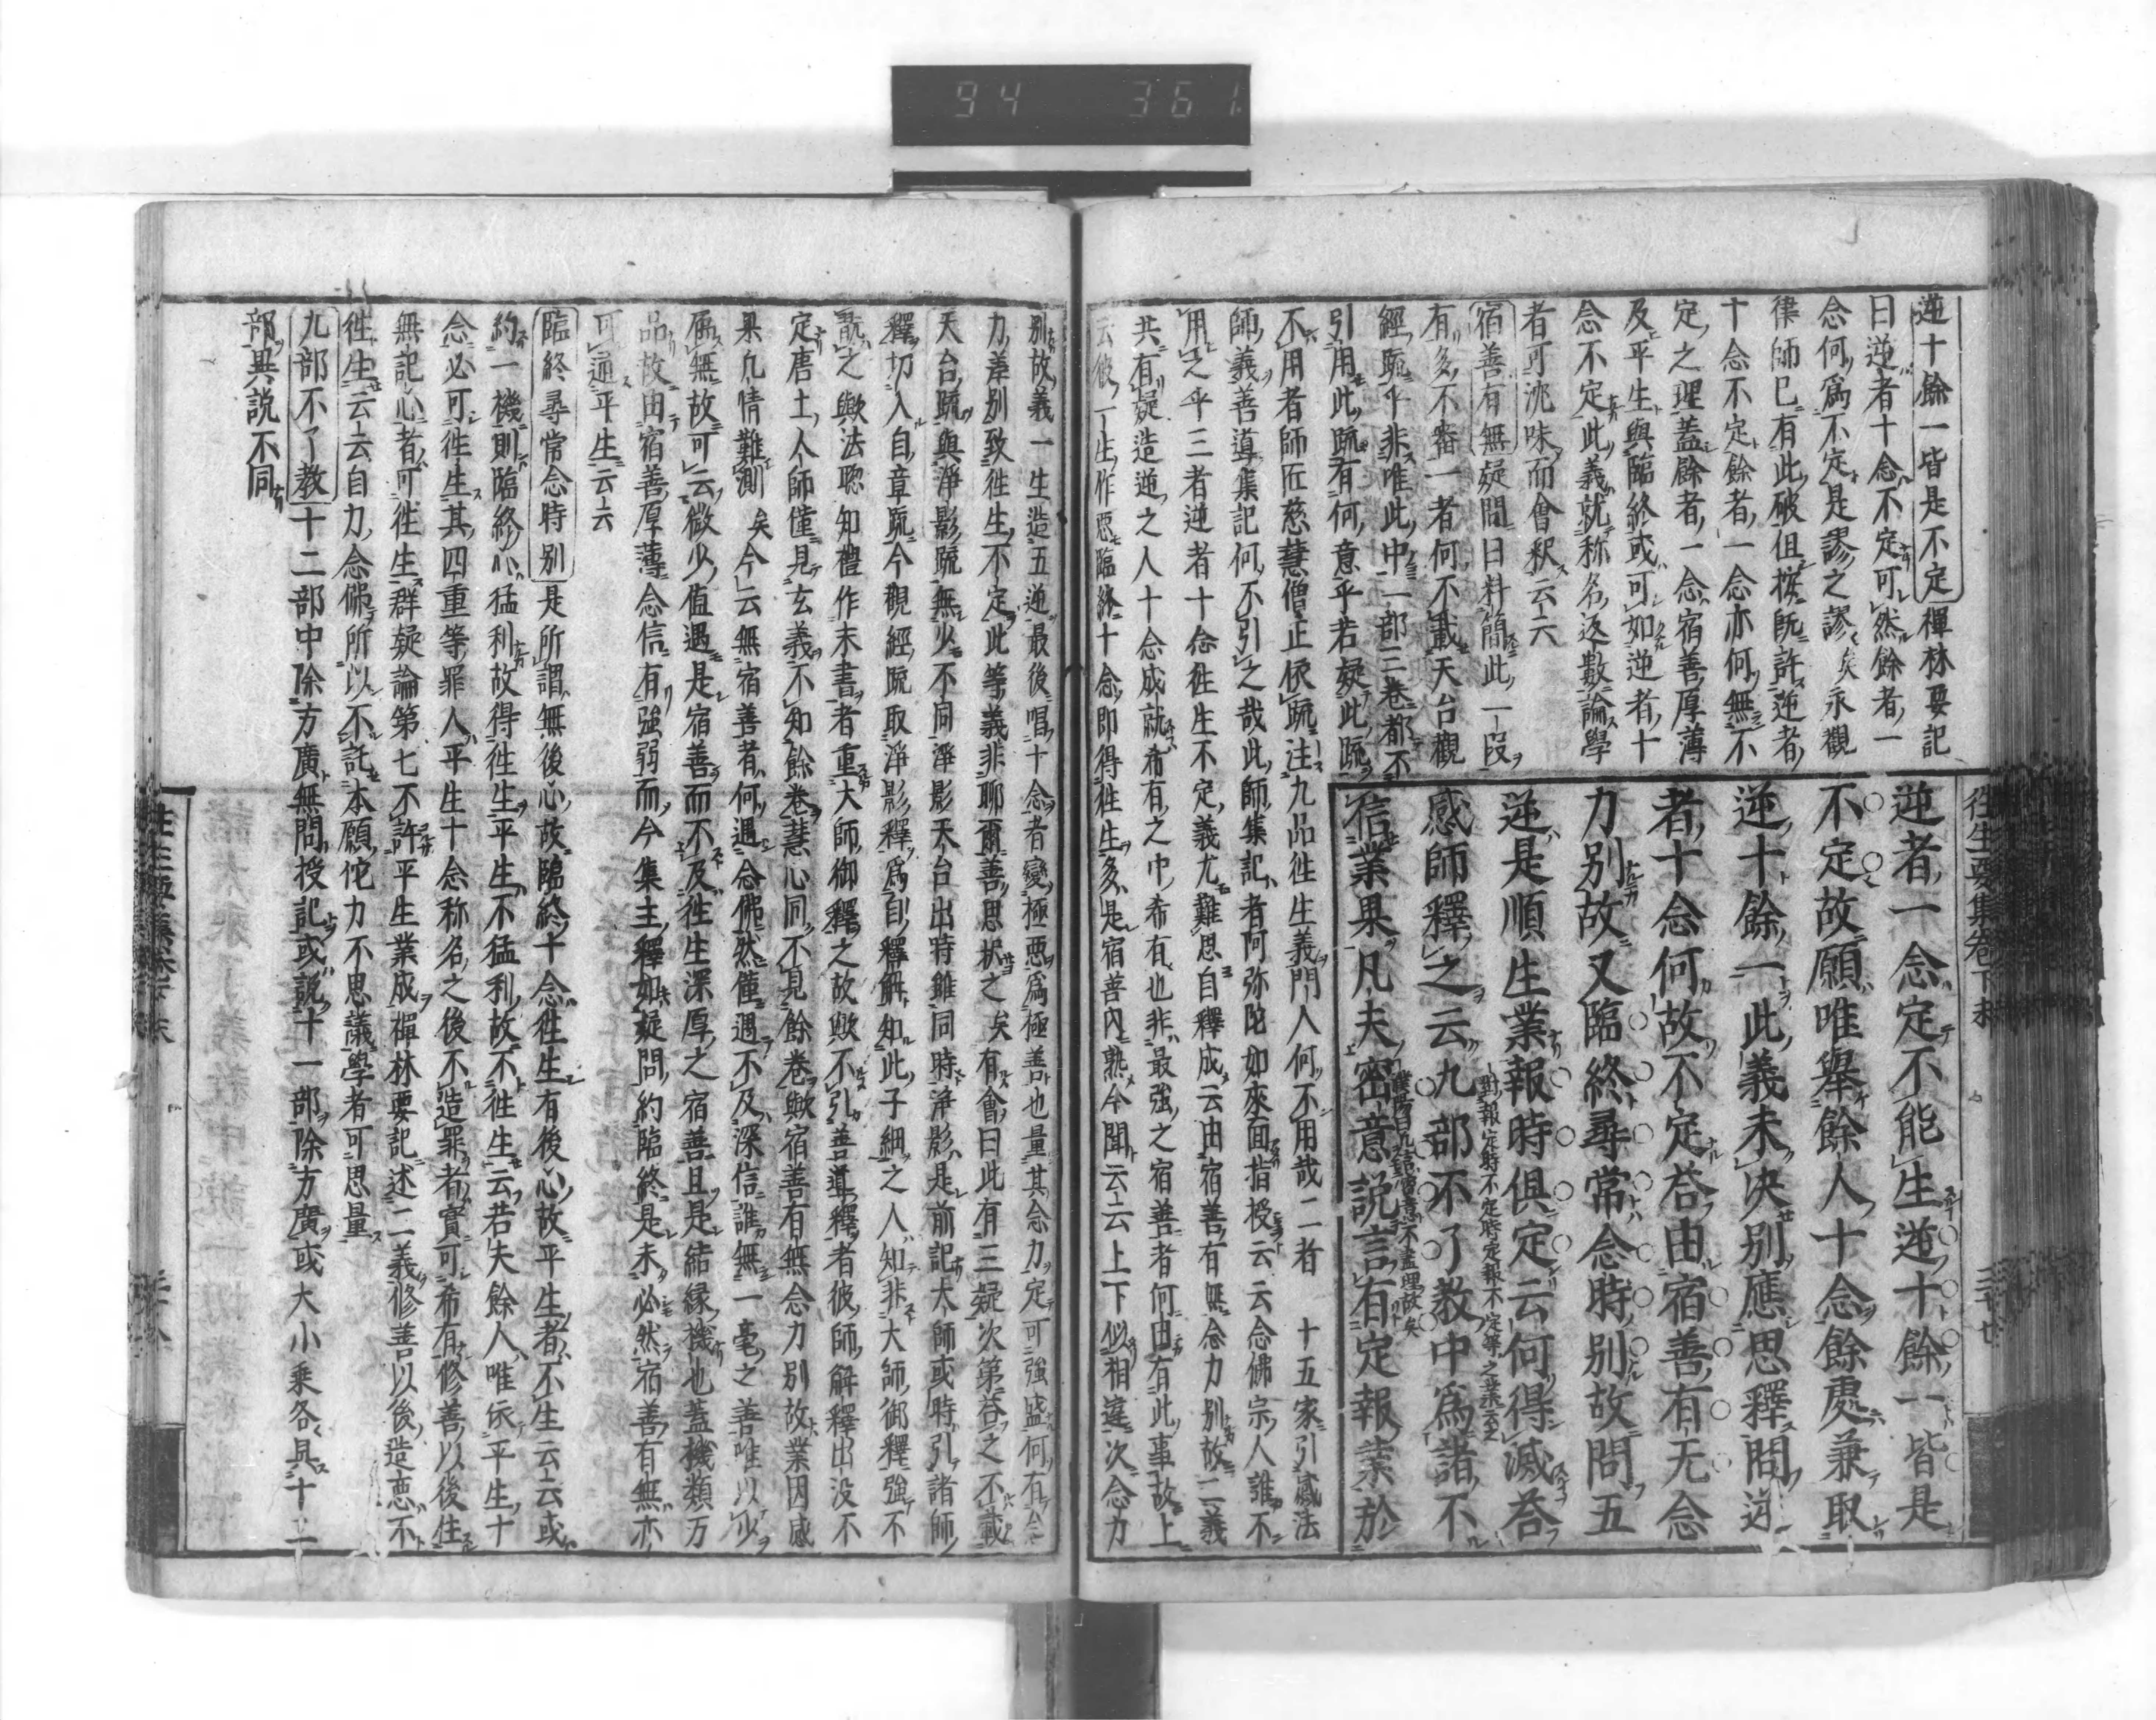 94 361
往生要集卷下末 三十七
逆者一念定不能生逆十餘一皆是
不定故願唯擧餘人十念餘處兼取
逆十餘一此義未決別應思釋問逆
者十念何故不定答由宿善有无念
力別故又臨終尋常念時別故問五
逆是順生業報時俱定云何得滅答
感師釋之云九部不了教中爲諸不
信業果凡夫密意説言有定報業於
逆十餘一皆是不定禪林要記
曰逆者十念不定可然餘者一
念何爲不定是謬之謬矣永觀
律師已有此破但撿既許逆者
十念不定餘者一念亦何無不
定之理蓋餘者一念宿善厚薄
及平生與臨終或可如逆者十
念不定此義就称名返數論學
者可洮味而會釈云六
宿善有無疑問曰料簡此一段
有多不審一者何不載天台觀
經疏乎非唯此中一部三卷都不
引用此疏有何意乎若疑此疏
不用者師匠慈慧僧正依疏注九品往生義門人何不用哉二者 十五家引感法
師義善導集記何不引之哉此師集記者阿弥陀如來面指授云云念佛宗人誰不
用之乎三者逆者十念往生不定義尤難思自釋成云由宿善有無念力別故二義
共有疑造逆之人十念成就希有之中希有也非最強之宿善者何由有此事故上
云彼一生作惡臨終十念即得往生多是宿善内熟今聞云云上下似相違次念力
別故義一生造五逆最後唱十念者變極惡爲極善也量其念力定可強盛何有
力差別致往生不定此等義非聊爾善思択之矣有會曰此有三疑次第答之不載
天台疏與淨影疏無少不同淨影天台出時雖同時淨影是前記大師或時引諸師
釋切入自章疏今觀經疏取淨影釋爲自釋解知此子細之人知非大師御釋強不
翫之歟法聡知禮作末書者重大師御釋之故歟不引善導釋者彼師解釋出没不
定唐土人師僅見玄義不知餘卷慧心同不見餘卷歟宿善有無念力別故業因感
果凡情難測矣今云無宿善者何遇念佛然僅遇不及深信誰無一毫之善唯以少
属無故可云微少値遇是宿善而不及往生深厚之宿善且是結縁機也蓋機類万
品故由宿善厚薄念信有強弱而今集主釋如疑問約臨終是未必然宿善有無亦
可通平生云六
臨終尋常念時別是所謂無後心故臨終十念往生有後心故平生者不生云云或
約一機則臨終心猛利故得往生平生不猛利故不往生云若夫餘人唯依平生十
念必可往生其四重等罪人平生十念称名之後不造罪者實可希有修善以後住
無記心者可往生群疑論第七不許平生業成禪林要記述二義修善以後造惡不
往生云云自力念佛所以不託本願佗力不思議學者可思量
九部不了教十二部中除方廣無問授記或説十一部除方廣或大小乘各具十二
部異説不同
往生要集卷下末 三十八